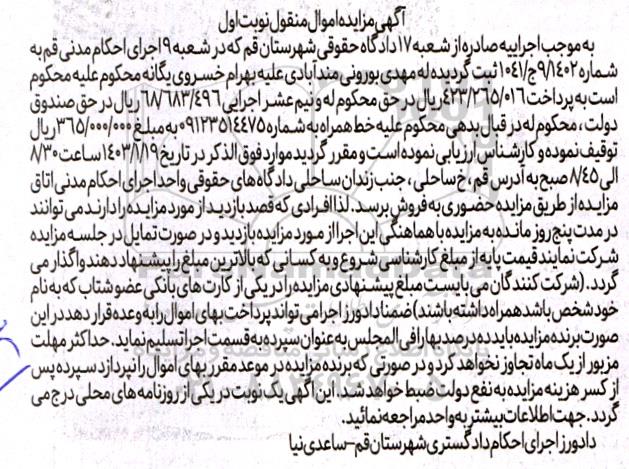 آگهی مزایده اموال منقول نوبت اول
به موجب اجراییه صادره از شعبه ۱۷ دادگاه حقوقی شهرستان قم که در شعبه ۹ اجرای احکام مدنی قم به
شماره ۹/۱۴۰۲ج/۱۰۴۱ ثبت گردیده له مهدی بورونی مندآبادی علیه بهرام خسروی یگانه محکوم علیه محکوم
است به پرداخت ۴۲۳/۲۶۵/۰۱۶ ریال در حق محکوم له و نیم عشر اجرایی ۶۸/۶۸۳/۴۹۶ ریال در حق صندوق
دولت، محکوم له در قبال بدهی محکوم علیه خط همراه به شماره ۰۹۱۲۳۵۱۴۴۷۵ به مبلغ ۳۶۵/۰۰۰/۰۰۰ ریال
توقیف نموده و کارشناس ارزیابی نموده است و مقرر گردید موارد فوق الذکر در تاریخ ۱۴۰۳/۱/۱۹ ساعت ۸/۳۰
الی ۸/۴۵ صبح به آدرس قم، خ ساحلی، جنب زندان ساحلی دادگاه های حقوقی واحد اجرای احکام مدنی اتاق
مزایده از طریق مزایده حضوری به فروش برسد. لذا افرادی که قصد بازدید از مورد مزایده را دارند می توانند
در مدت پنج روز مانده به مزایده با هماهنگی این اجرا از مورد مزایده بازدید و در صورت تمایل در جلسه مزایده
شرکت نمایند قیمت پایه از مبلغ کارشناسی شروع و به کسانی که بالاترین مبلغ را پیشنهاد دهند واگذار می
گردد. (شرکت کنندگان می بایست مبلغ پیشنهادی مزایده را در یکی از کارت های بانکی عضو شتاب که به نام
خود شخص باشد همراه داشته باشند) ضمنا دادورز اجرا می تواند پرداخت بهای اموال را به وعده قرار دهد در این
صورت برنده مزایده باید ده درصد بها را فی المجلس به عنوان سپرده به قسمت اجرا تسلیم نماید. حداکثر مهلت
مزبور از یک ماه تجاوز نخواهد کرد و در صورتی که برنده مزایده در موعد مقرر بهای اموال را نپردازد سپرده پس
از کسر هزینه مزایده به نفع دولت ضبط خواهد شد. این آگهی یک نوبت در یکی از روزنامه های محلی درج می
گردد. جهت اطلاعات بیشتر به واحد مراجعه نمائید.
دادورز اجرای احکام دادگستری شهرستان قم - ساعدی نیا